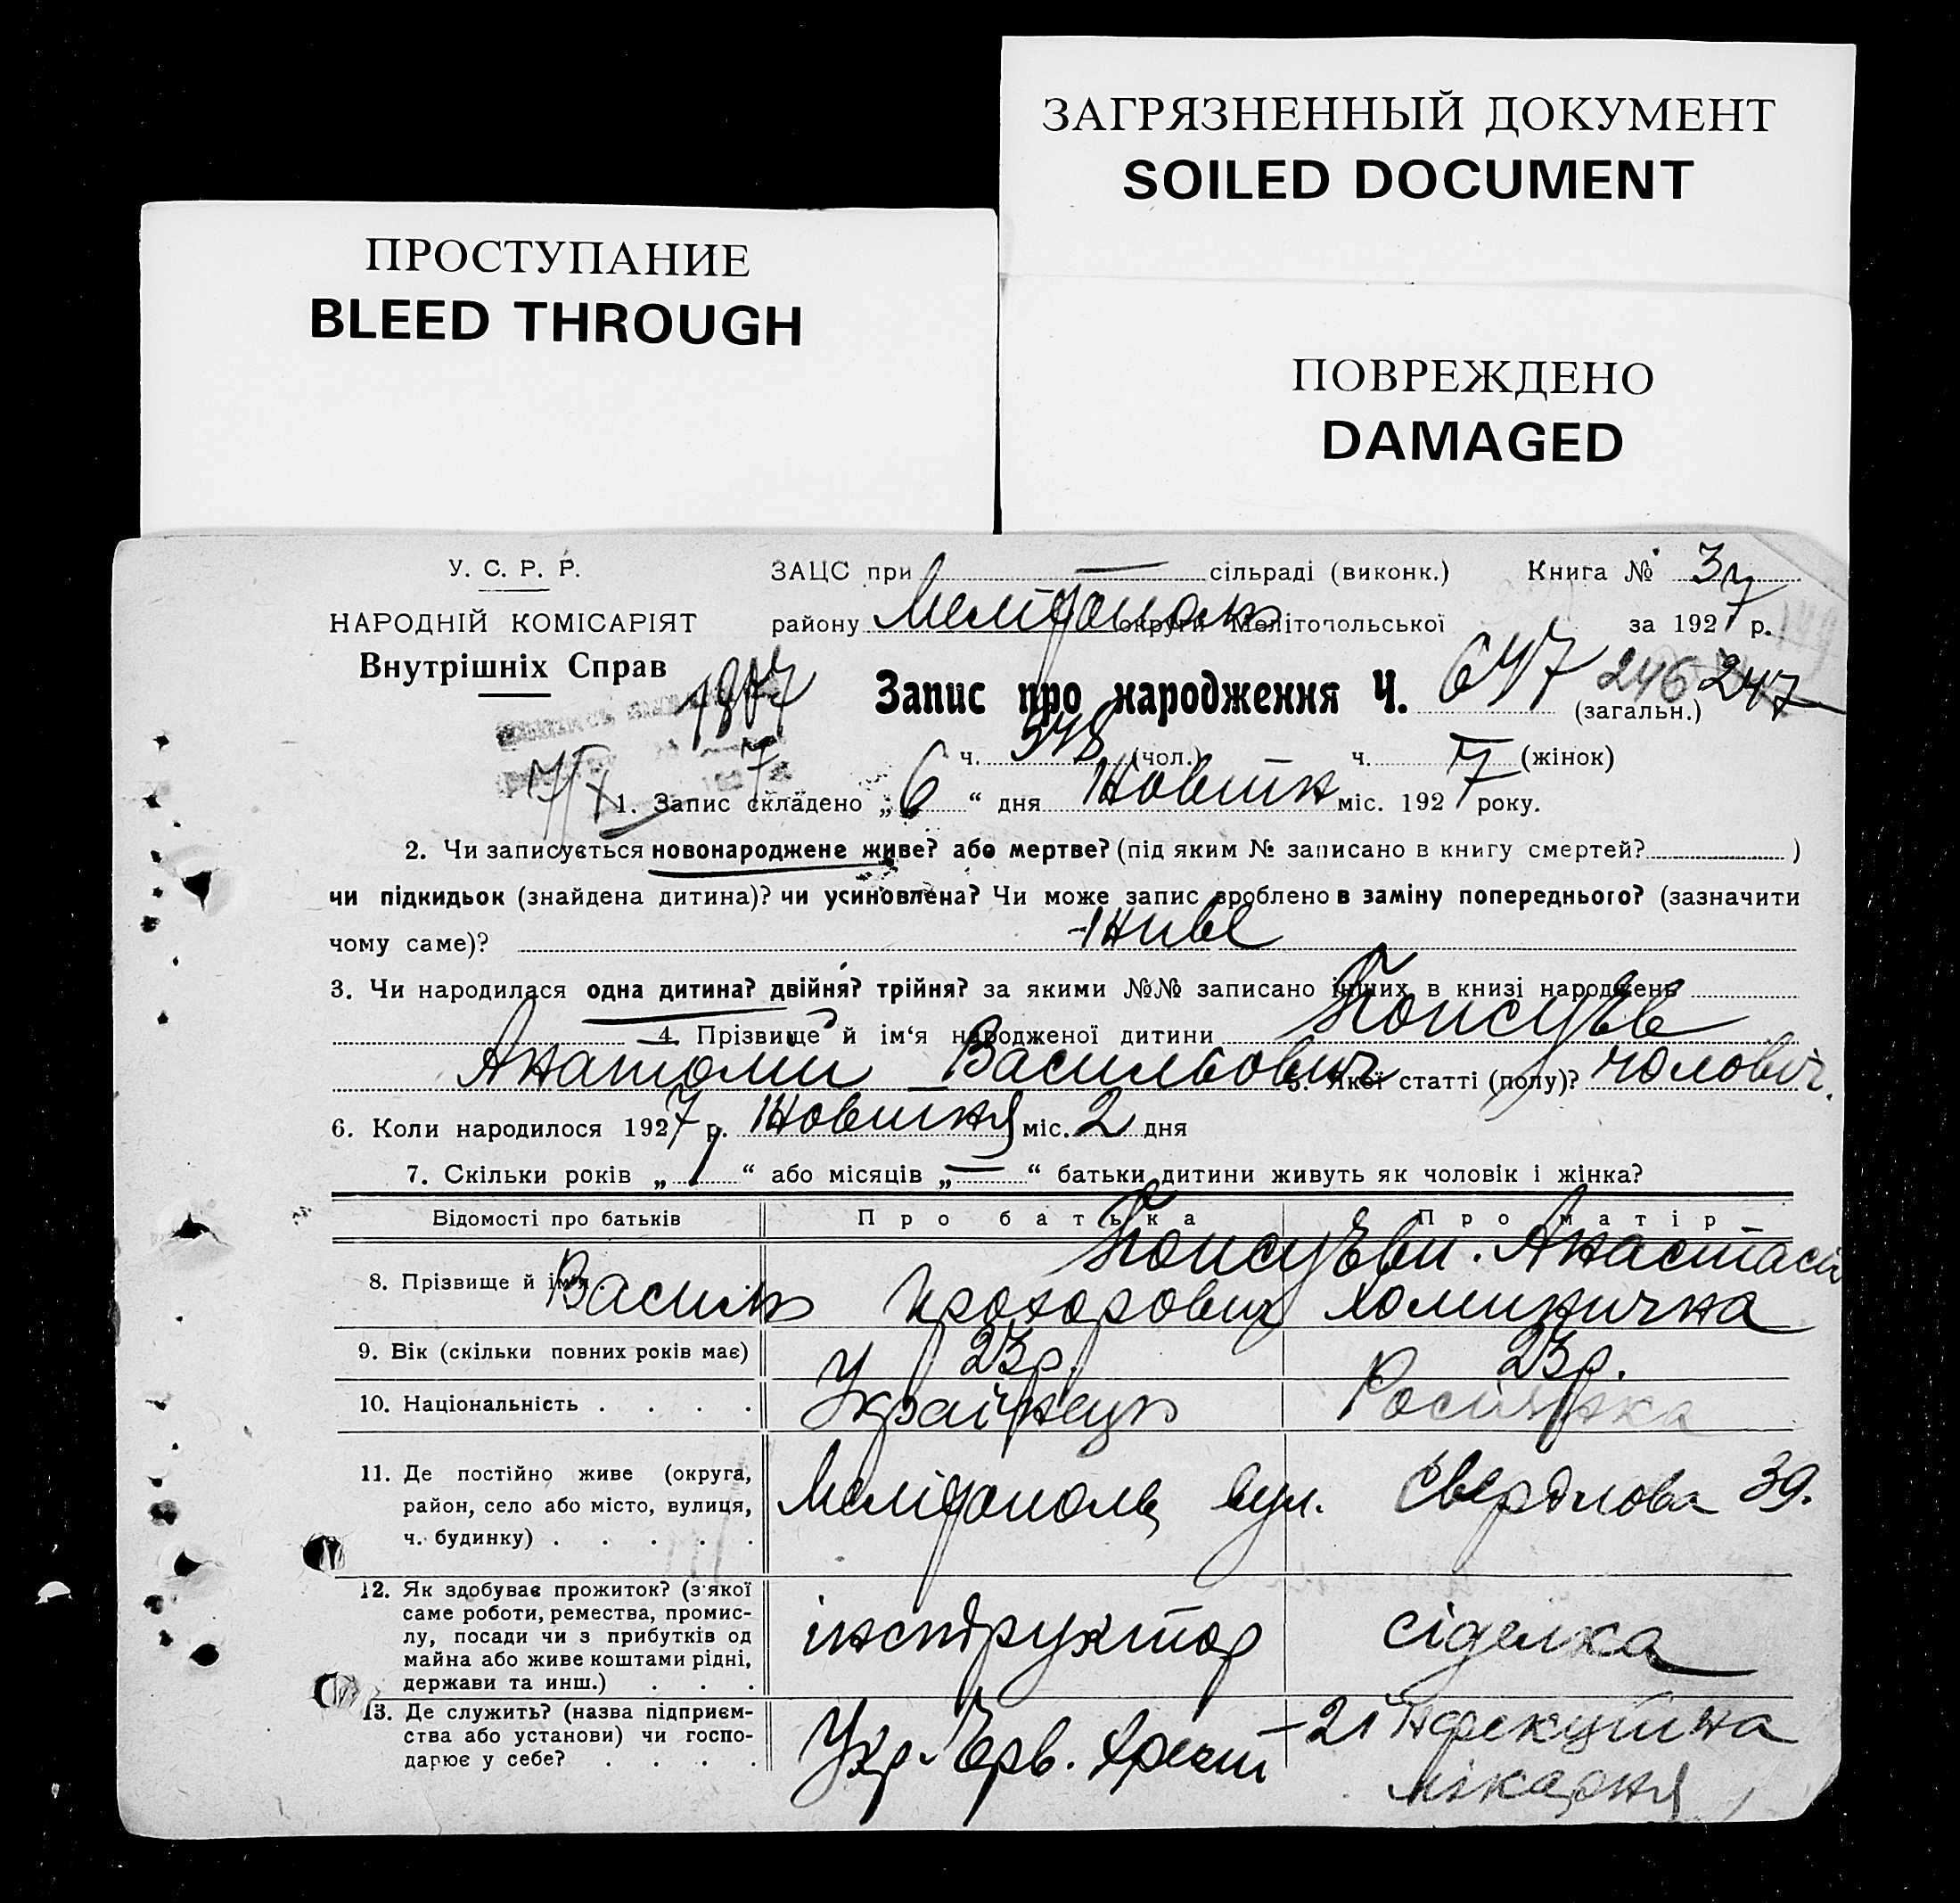 ЗАГРЯЗНЕННЫЙ ДОКУМЕНТ
SOILED DOCUMENT
ПРОСТУПАНИЕ
BLEED THROUGH
ПОВРЕЖДЕНО
DAMAGED
У. С. Р. Р.
НАРОДНІЙ КОМІСАРІЯТ
Внутрішніх Справ
ЗАЦС при — сільраді (виконк.) Книга №
району округи Мелітопольської за 1927 р.
Запис про народження Ч. 647 246 247
(загальн.)
ч. 348 (чол.) ч. — (жінок)
1. Запис складено „ 6 “ дня Жовтн міс. 1927 року.
2. Чи записується новонароджене живе? або мертве? (під яким № записано в книгу смертей? )
чи підкидьок (знайдена дитина)? чи усиновлена? Чи може запис зроблено в заміну попереднього? (зазначити
чому саме)? живе
3. Чи народилася одна дитина? двійня? трійня? за якими №№ записано інших в книзі народжень
4. Прізвище й ім‘я народженої дитини
Анатолій Васильович 5. Якої статті (полу)? чоловіч.
6. Коли народилося 1927 р. Жовтня міс. 2 дня
7. Скільки років „ 1 “ або місяців „ — “ батьки дитини живуть як чоловік і жінка?
Відомості про батьків Про батька Про матір
8. Прізвище й ім‘я Василь Прохорович Анастасія
9. Вік (скільки повних років має) 23 р. 23 р.
10. Національність . . . . Українець Росіянка
11. Де постійно живе (округа,
район, село або місто, вулиця,
ч. будинку) . . . . .
Мелітополь вул. Свердлова 39.
12. Як здобуває прожиток? (з якої
саме роботи, ремества, промис-
лу, посади чи з прибутків од
майна або живе коштами рідні,
держави та инш.) . . .
інструктор сіделка
13. Де служить? (назва підприєм-
ства або установи) чи госпо-
дарює у себе? . . . .
Укр. Черв. Хрест
лікарня